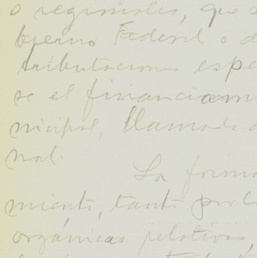 o regionales, que
bierno Federal o d
tributaciones espe
se el financiami
nicipal, llamada
nal
La forma
miento, tanto por l
orgánicas relativas,